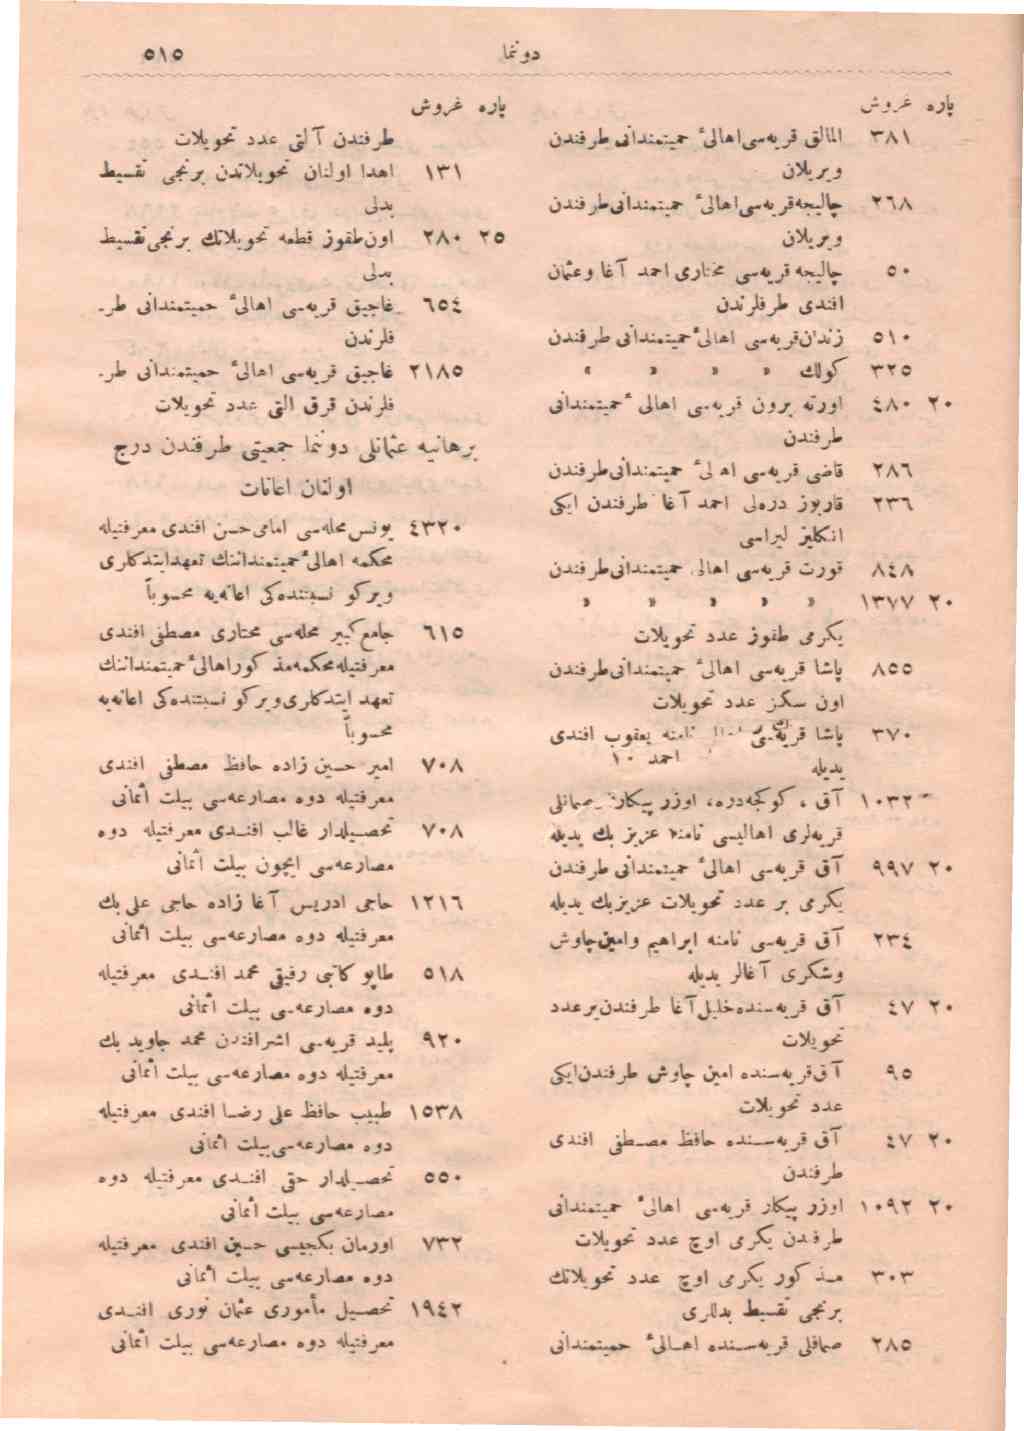 دوننما ٥١٥
پاره غروش
٣٨١ المالق قریه‌سی اهالیٔ حمیتمندانی طرفندن
ویریلان
٢٦٨ چالیجه قریه‌سی اهالیٔ حمیتمندانی طرفندن
ویریلان
٥٠ چالیجه قریه‌سی مختاری احمد آغا وعثمان
افندی طرفلرندن
٥١٠ زندان قریه‌سی اهالیٔ حمیتمندانی طرفندن
٣٢٥ كولك » » » »
٢٠ ٤٨٠ اورته برون قریه‌سی اهالیٔ حمیتمندانی
طرفندن
٢٨٦ قاضی قریه‌سی اهالیٔ حمیتمندانی طرفندن
٢٣٦ قارپوز دره‌لی احمد آغا طرفندن ایكی
انكلیز لیراسی
٨٤٨ قورت قریه‌سی اهالی حمیتمندانی طرفندن
٢٠ ١٣٧٧ » » » » »
یكرمی طقوز عدد تحویلات
٨٥٥ پاشا قریه‌سی اهالیٔ حمیتمندانی طرفندن
اون سكز عدد تحویلات
٣٧٠ پاشا قریه‌سی نامنه یعقوب افندی
یدیله احمد ١٠
١٠٣٢ آق ، كوكجه‌دره، اوزر پیكار، صمانلی
قریه‌لری اهالیسی نامنه عزیز بك یدیله
٢٠ ٩٩٧ آق قریه‌سی اهالیٔ حمیتمندانی طرفندن
یكرمی بر عدد تحویلات عزیز بك یدیله
٢٣٤ آق قریه‌سی نامنه ابراهیم وامین چاوش
وشكری آغالر یدیله
٢٠ ٤٧ آق قریه‌سنده خلیل آغا طرفندن بر عدد
تحویلات
٩٥ آق قریه‌سنده امین چاوش طرفندن ایكی
عدد تحویلات
٢٠ ٤٧ آق قریه‌سنده حافظ مصطفی افندی
طرفندن
٢٠ ١٠٩٢ اوزر پیكار قریه‌سی اهالیٔ حمیتمندانی
طرفندن یكرمی اوچ عدد تحویلات
٣٠٣ مذكور یكرمی اوچ عدد تحویلاتك
برنجی تقسیط بدللری
٢٨٥ صمانلی قریه‌سنده اهالیٔ حمیتمندانی
پاره غروش
طرفندن آلتی عدد تحویلات
١٣١ اهدا اولنان تحویلاتدن برنجی تقسیط
بدلی
٢٥ ٢٨٠ اون طقوز قطعه تحویلاتك برنجی تقسیط
بدلی
٦٥٤ غاجیق قریه‌سی اهالیٔ حمیتمندانی طر-
فلرندن
٢١٨٥ غاجیق قریه‌سی اهالیٔ حمیتمندانی طر-
فلرندن قرق التی عدد تحویلات
برهانیه عثمانلی دوننما جمعیتی طرفندن درج
اولنان اعانات
٤٣٢٠ یونس محله‌سی امامی حسن افندی معرفتیله
محكمه اهالیٔ حمیتمنداننك تعهد ایتدكلری
ویركو نسبتنده‌كی اعانه‌یه محسوباً
٦١٥ جامع كبیر محله‌سی مختاری مصطفی افندی
معرفتیله محكمه مذكور اهالیٔ حمیتمنداننك
تعهد ایتدكلری ویركو نسبتنده‌كی اعانه‌یه
محسوباً
٧٠٨ امیر حسین زاده حافظ مصطفی افندی
معرفتیله دوه مصارعه‌سی بیلت اثمانی
٧٠٨ تحصیلدار غالب افندی معرفتیله دوه
مصارعه‌سی ایچون بیلت اثمانی
١٢١٦ حاجی ادریس آغا زاده حاجی علی بك
معرفتیله دوه مصارعه‌سی بیلت اثمانی
٥١٨ طاپو كاتبی رفیقی محمد افندی معرفتیله
دوه مصارعه‌سی بیلت اثمانی
٩٢٠ پلید قریه‌سی اشرافندن محمد جاوید بك
معرفتیله دوه مصارعه‌سی بیلت اثمانی
١٥٣٨ طبیب حافظ علی رضا افندی معرفتیله
دوه مصارعه‌سی بیلت اثمانی
٥٥٠ تحصیلدار حقی افندی معرفتیله دوه
مصارعه‌سی بیلت اثمانی
٧٣٢ اورمان بكجیسی حسین افندی معرفتیله
دوه مصارعه‌سی بیلت اثمانی
١٩٤٢ تحصیل مأموری عثمان نوری افندی
معرفتیله دوه مصارعه‌سی بیلت اثمانی